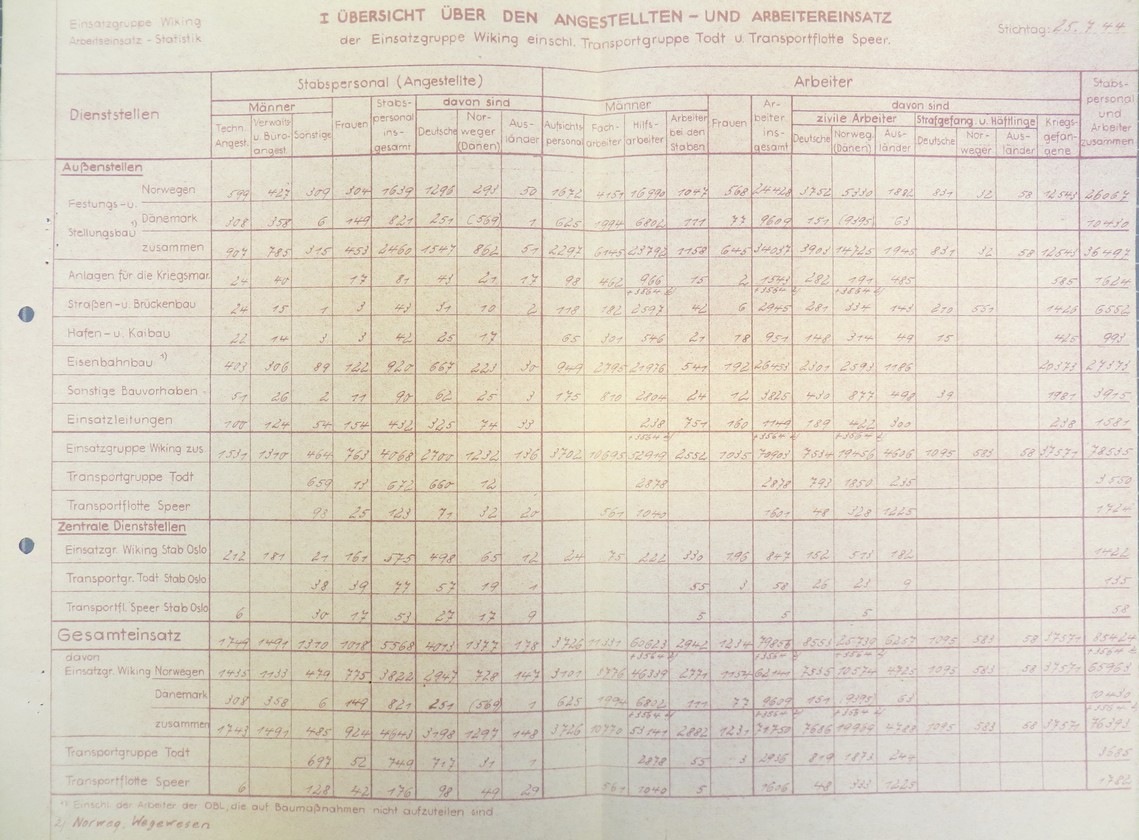 Einsatzgruppe Wiking
Arbeitseinsatz - Statistik
I ÜBERSICHT ÜBER DEN ANGESTELLTEN - UND ARBEITEREINSATZ
der Einsatzgruppe Wiking einschl. Transportgruppe Todt u. Transportflotte Speer.
Stichtag: 25.7.44
Dienststellen
Stabspersonal (Angestellte)
Arbeiter
Stabspersonal und Arbeiter zusammen
Männer
Frauen
Stabspersonal insgesamt
davon sind
Männer
Frauen
Arbeiter insgesamt
davon sind
Techn. Angest.
Verwalt. u. Büroangest.
Sonstige
Deutsche
Norweger (Dänen)
Ausländer
Aufsichtspersonal
Facharbeiter
Hilfsarbeiter
Arbeiter bei den Stäben
zivile Arbeiter
Strafgefang. u. Häftlinge
Kriegsgefangene
Deutsche
Norweg. (Dänen)
Ausländer
Deutsche
Norweger
Ausländer
Außenstellen
Festungs-u. Stellungsbau 1)
Norwegen 599 427 309 304 1639 1296 293 50 1672 4151 16990 1047 568 24428 3752 5330 1882 831 32 58 12543 26067
Dänemark 308 358 6 149 821 251 (569) 1 625 1994 6802 111 77 9609 151 (9395) 63 10430
zusammen 907 785 315 453 2460 1547 862 51 2297 6145 23792 1158 645 34037 3903 14725 1945 831 32 58 12543 36497
Anlagen für die Kriegsmar. 24 40 17 81 43 21 17 98 462 966 15 2 1543 282 191 485 585 1624
+3564 2) +3564 2) +3564 2)
Straßen-u. Brückenbau 24 15 1 3 43 31 10 2 118 182 2597 42 6 2945 281 334 143 210 551 1426 6552
Hafen-u. Kaibau 22 14 3 3 42 25 17 65 301 546 21 18 951 148 314 49 15 425 993
Eisenbahnbau 1) 403 306 89 122 920 667 223 30 949 2795 21976 541 192 26453 2301 2593 1186 20373 27373
Sonstige Bauvorhaben 51 26 2 11 90 62 25 3 175 810 2804 24 12 3825 430 877 498 39 1981 3915
Einsatzleitungen 100 124 54 154 432 325 74 33 238 751 160 1149 189 422 300 238 1581
+3564 2) +3564 2) +3564 2)
Einsatzgruppe Wiking zus. 1531 1310 464 763 4068 2700 1232 136 3702 10695 52919 2552 1035 70903 7534 19456 4606 1095 583 58 37571 78535
Transportgruppe Todt 659 13 672 660 12 2878 2878 793 1850 235 3550
Transportflotte Speer 93 25 123 71 32 20 561 1040 1601 48 328 1225 1724
Zentrale Dienststellen
Einsatzgr. Wiking Stab Oslo 212 181 21 161 575 498 65 12 24 75 222 330 196 847 152 513 182 1422
Transportgr. Todt Stab Oslo 38 39 77 57 19 1 55 3 58 26 23 9 135
Transportfl. Speer Stab Oslo 6 30 17 53 27 17 9 5 5 5 58
Gesamteinsatz 1749 1491 1310 1018 5568 4013 1377 178 3726 11331 60623 2942 1234 79856 8553 25739 6257 1095 583 58 37571 85424
davon
+3564 2) +3564 2) +3564 2) +3564 2)
Einsatzgr. Wiking Norwegen 1435 1133 479 775 3822 2947 728 147 3101 8776 46339 2771 1154 62141 7535 10574 4725 1095 583 58 37571 65963
Dänemark 308 358 6 149 821 251 (569) 1 625 1994 6802 111 77 9609 151 (9395) 63 10430
+3564 2) +3564 2) +3564 2) +3564 2)
zusammen 1743 1491 485 924 4643 3198 1297 148 3726 10770 53141 2882 1231 71750 7686 19969 4788 1095 583 58 37571 76393
Transportgruppe Todt 697 52 749 717 31 1 2878 55 3 2936 819 1873 244 3685
Transportflotte Speer 6 128 42 176 98 49 29 561 1040 5 1606 48 333 1225 1782
1) Einschl. der Arbeiter der OBL, die auf Baumaßnahmen nicht aufzuteilen sind
2) Norweg. Wegewesen